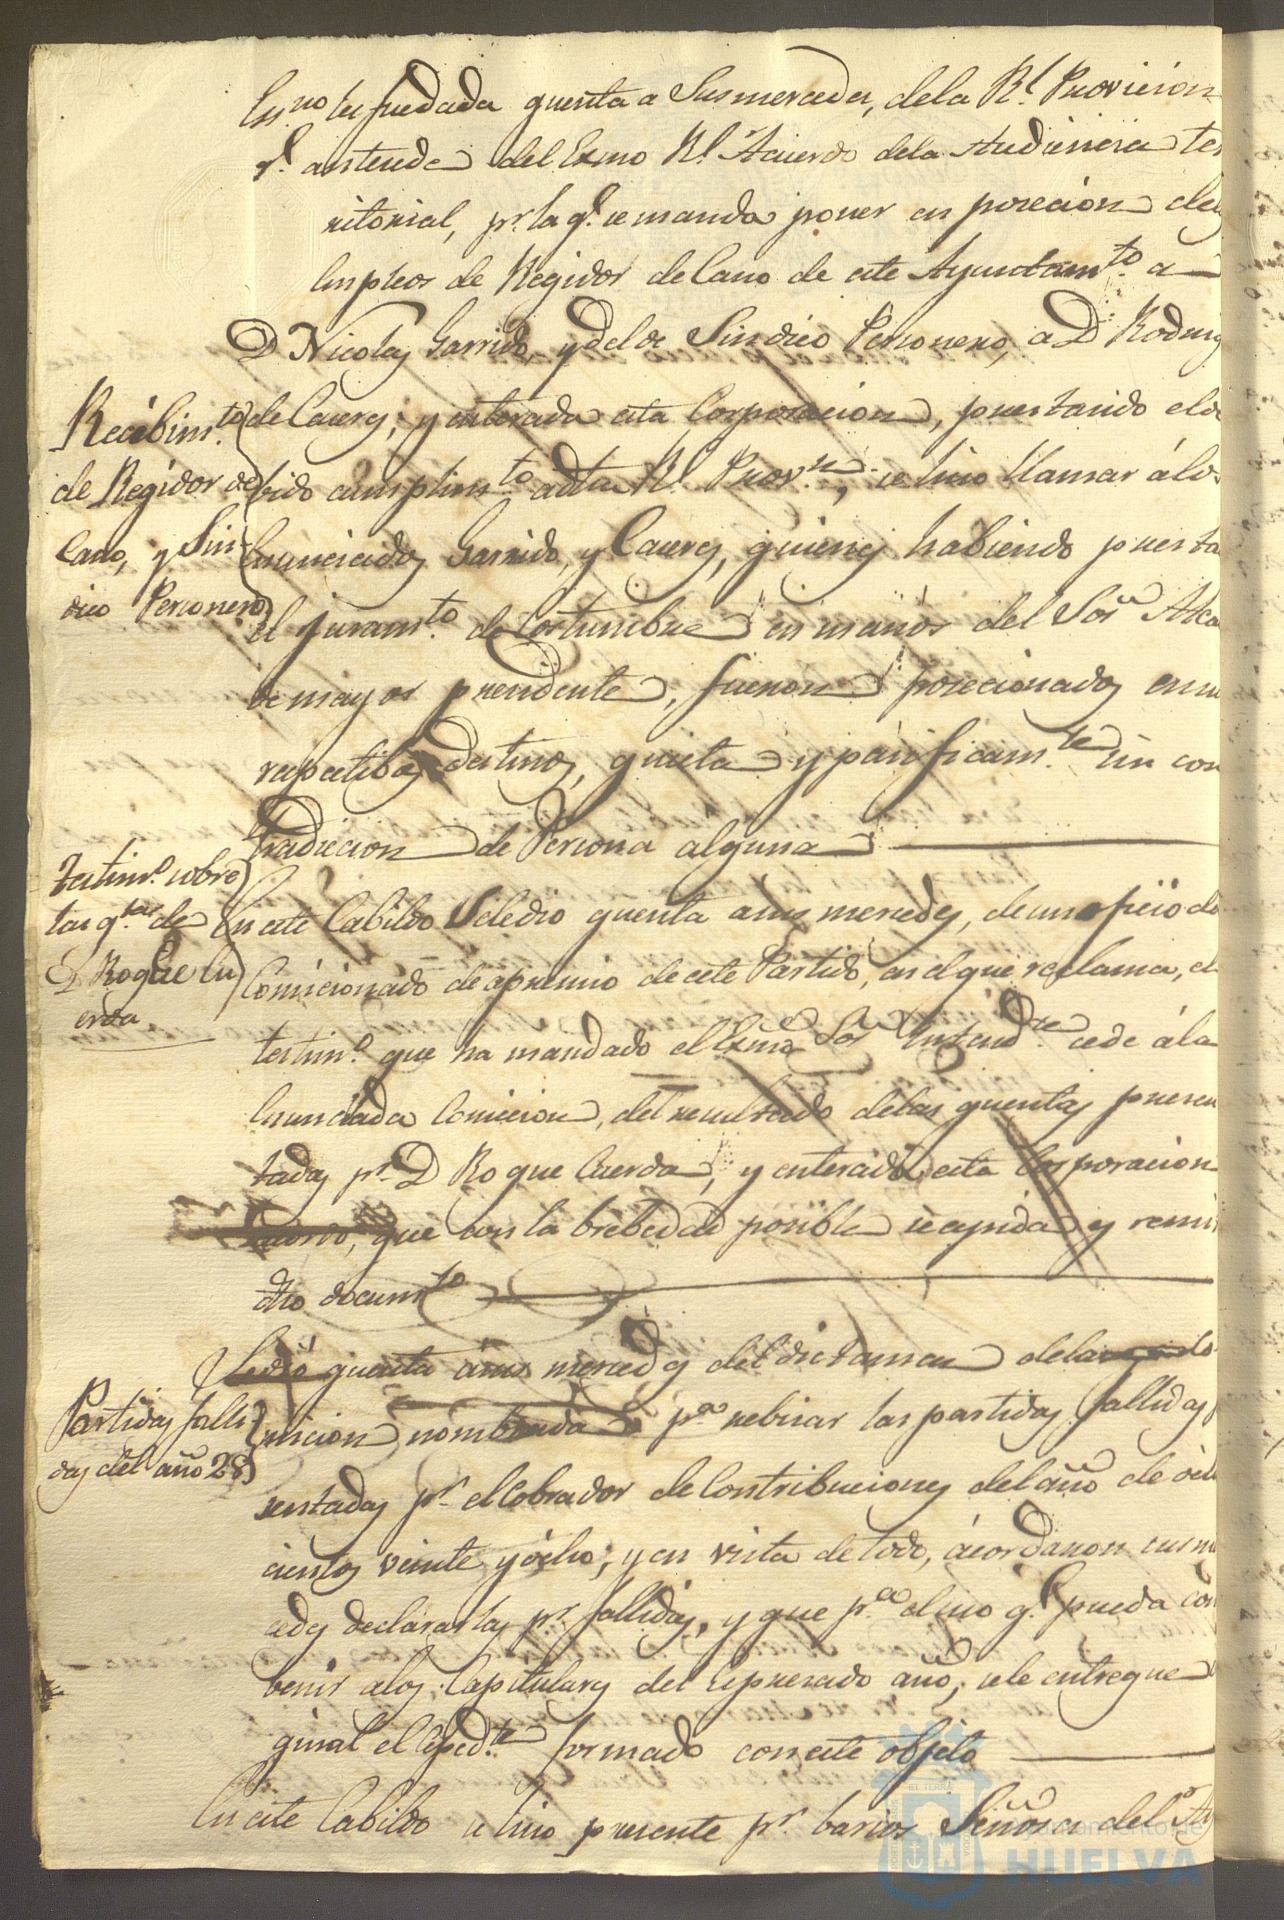 Essno les fue dada quenta a Susmercedes, dela Rl. Provicion
qe. antecede del Exmo Rl. Acuerdo dela Audiencia ter
ritorial, pr. la qe. se manda poner en posecion delos
Empleos de Regidor de Cano de este Ayuntamto. a
D Nicolas Garrido, y del de Sindico Personero, a D Rodrig
Recibimto.
de Regidor de
Cano, y Sin-
dico Personero
de Caseres; y enterada esta Corporacion, prestando el de
bido cumplimto. adha Rl. Provn., se hizo llamar álos
Enunciados Garrido, y Caseres, quienes habiendo presta
el juramto. de Costumbre en manos del Sor Alca
de mayor precidente, fueron posecionados en su
respetibos destinos, quieta y pacificamte. sin con
tradiccion de Persona alguna
Testimo. sobre
las qtas. de
D Roque Cu
erda
En este Cabildo Seledio quenta asus mercedes, de un oficio del
Comicionado de apremio de este Partido, en el que reclama, el
testimo. que ha mandado el Exmo Sor Intendte. se de á la
Enunciada Comicion, del resultado delas quentas presen
tadas pr. D Roque Cuerda, y enterada esta Corporacion
Acordó, que con la brebedad posible se espida y remi
dho documto
Partidas falli
das del año 28
Sedió quenta ásus mercedes del dictamen dela Co
micion nombrada pa. rebisar las partidas fallidas p
sentadas pr. el Cobrador de Contribuciones del año de ócho
cientos veinte y ócho; y en vista de todo, ácordaron sus m
cedes declararlas pr. fallidas, y que pa. el uso qe. pueda con
benir alos Capitulares del Espresado año, sele entregue
ginal el Espedte. formado con este objeto
En este Cabildo se hizo presente pr. barios Señores del A
Ayuntamiento de
HUELVA